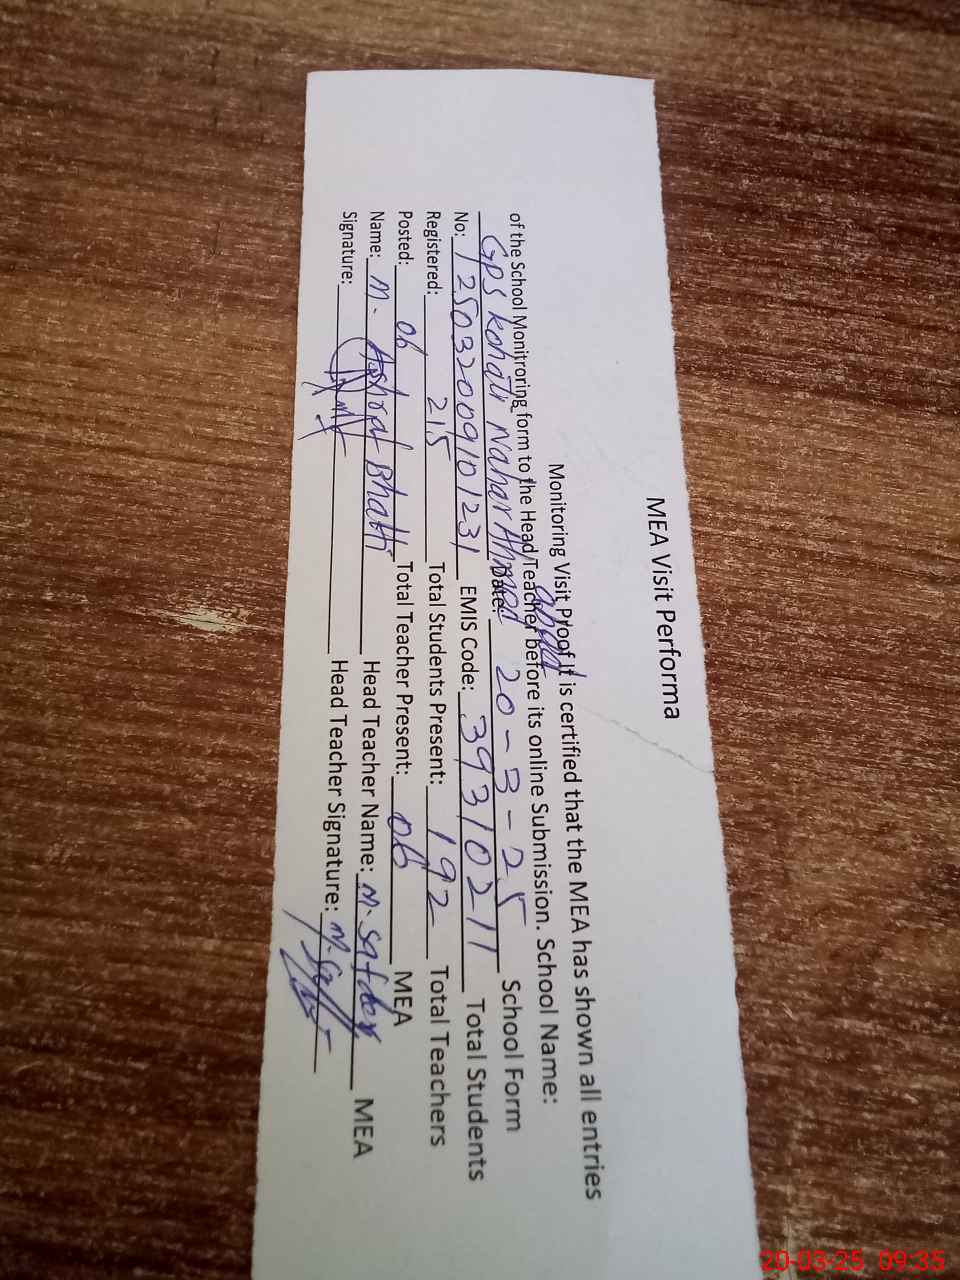 MEA Visit Performa
Monitoring Visit Proof It is certified that the MEA has shown all entries
of the School Monitroring form to the Head Teacher before its online Submission. School Name:
GPS Kohali Nahar Ahmed abad Date: 20-3-25 School Form
No: 125032009101231 EMIS Code: 39310211 Total Students
Registered: 215 Total Students Present: 192 Total Teachers
Posted: 06 Total Teacher Present: 06 MEA
Name: M. Ashraf Bhatti Head Teacher Name: M. Safder MEA
Signature: Head Teacher Signature: M. Saf
20-03-25 09:35